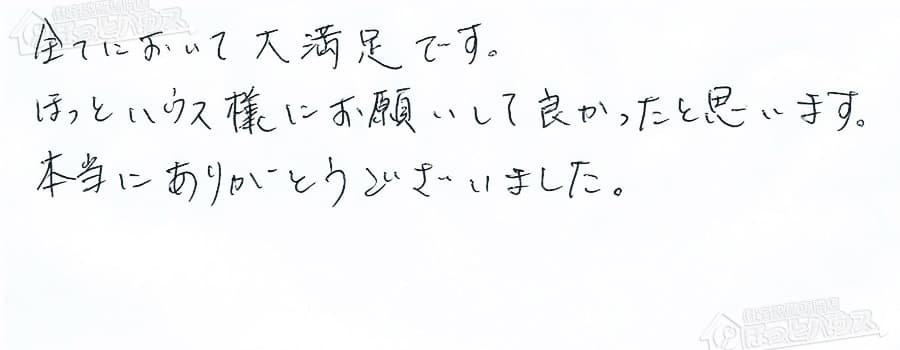 全てにおいて大満足です。
ほっとハウス様にお願いして良かったと思います。
本当にありがとうございました。
ほっとハウス